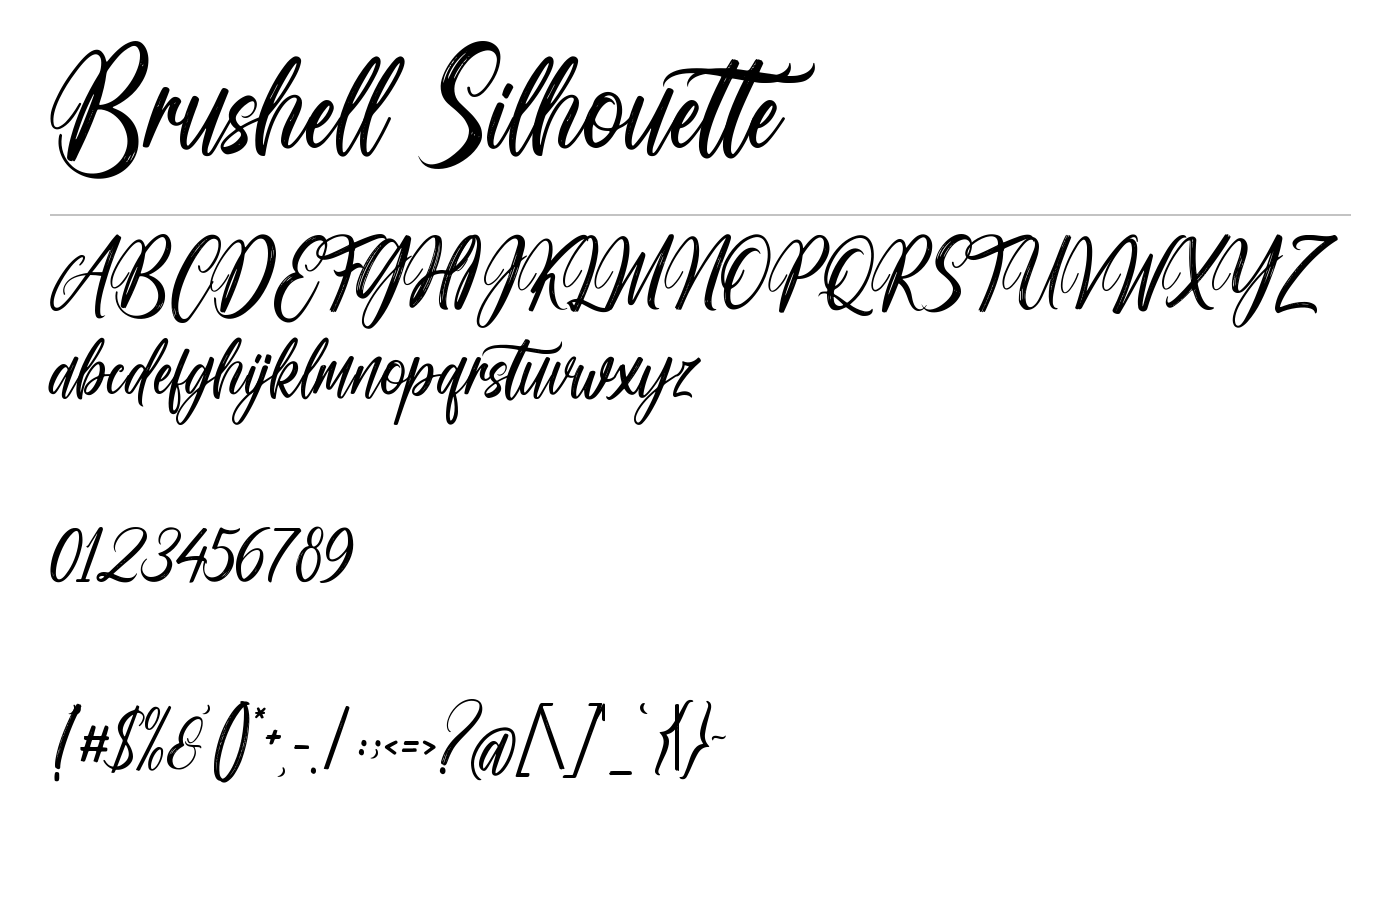 Brushell Silhouette
ABCDEFGHIJKLMNOPQRSTUVWXYZ
abcdefghijklmnopqrstuvwxyz
0123456789
!#$%&'()*+,-./:;<=>?@[\]_`{|}~